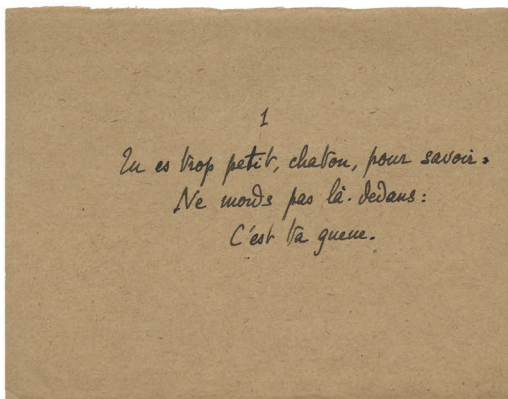 1
Tu es trop petit, chaton, pour savoir.
Ne mords pas là-dedans:
C'est ta queue.